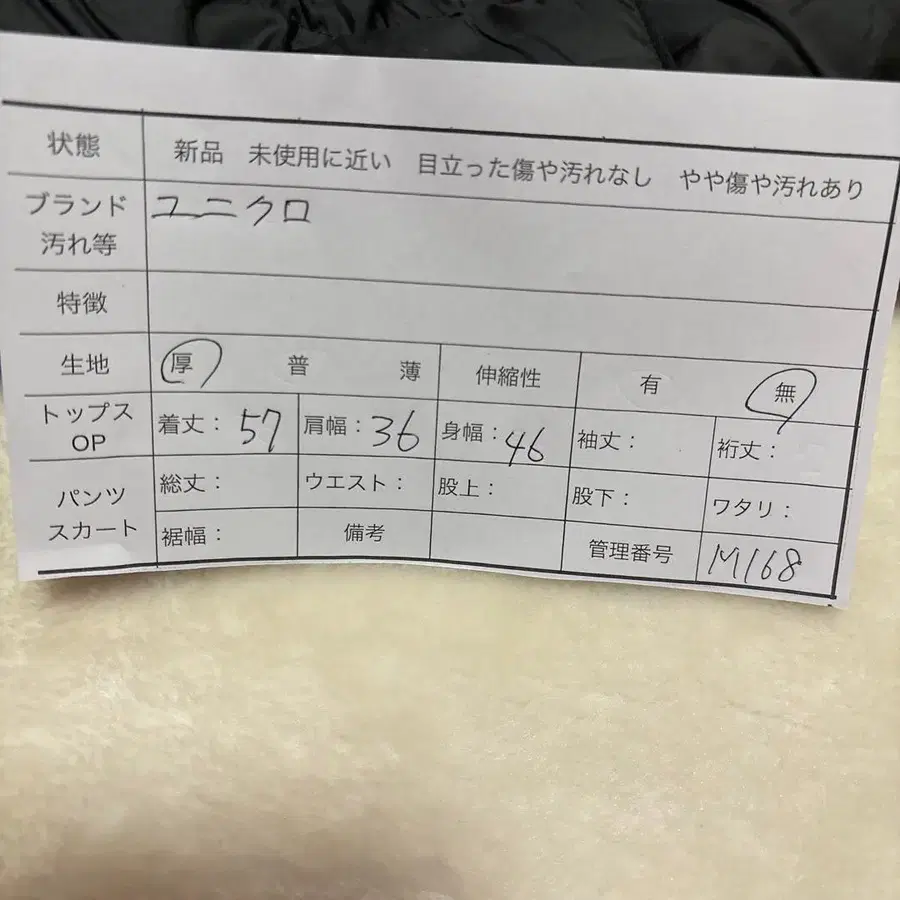 状態 新品 未使用に近い 目立った傷や汚れなし やや傷や汚れあり
ブランド ユニクロ
汚れ等
特徴
生地 厚 普 薄 伸縮性 有 無
トップス OP 着丈：57 肩幅：36 身幅：46 袖丈： 裄丈：
パンツ 総丈： ウエスト： 股上： 股下： ワタリ：
スカート 裾幅： 備考 管理番号 M168